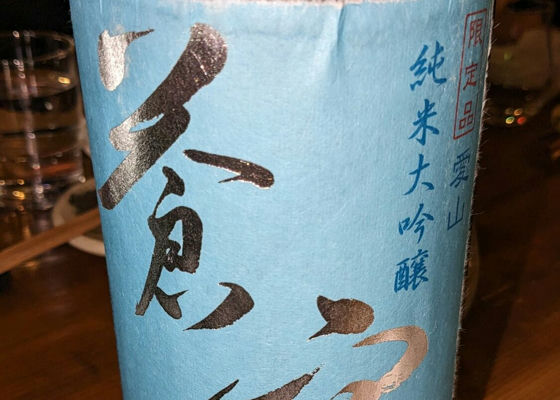 限定品
愛山
純米大吟醸
蒼空